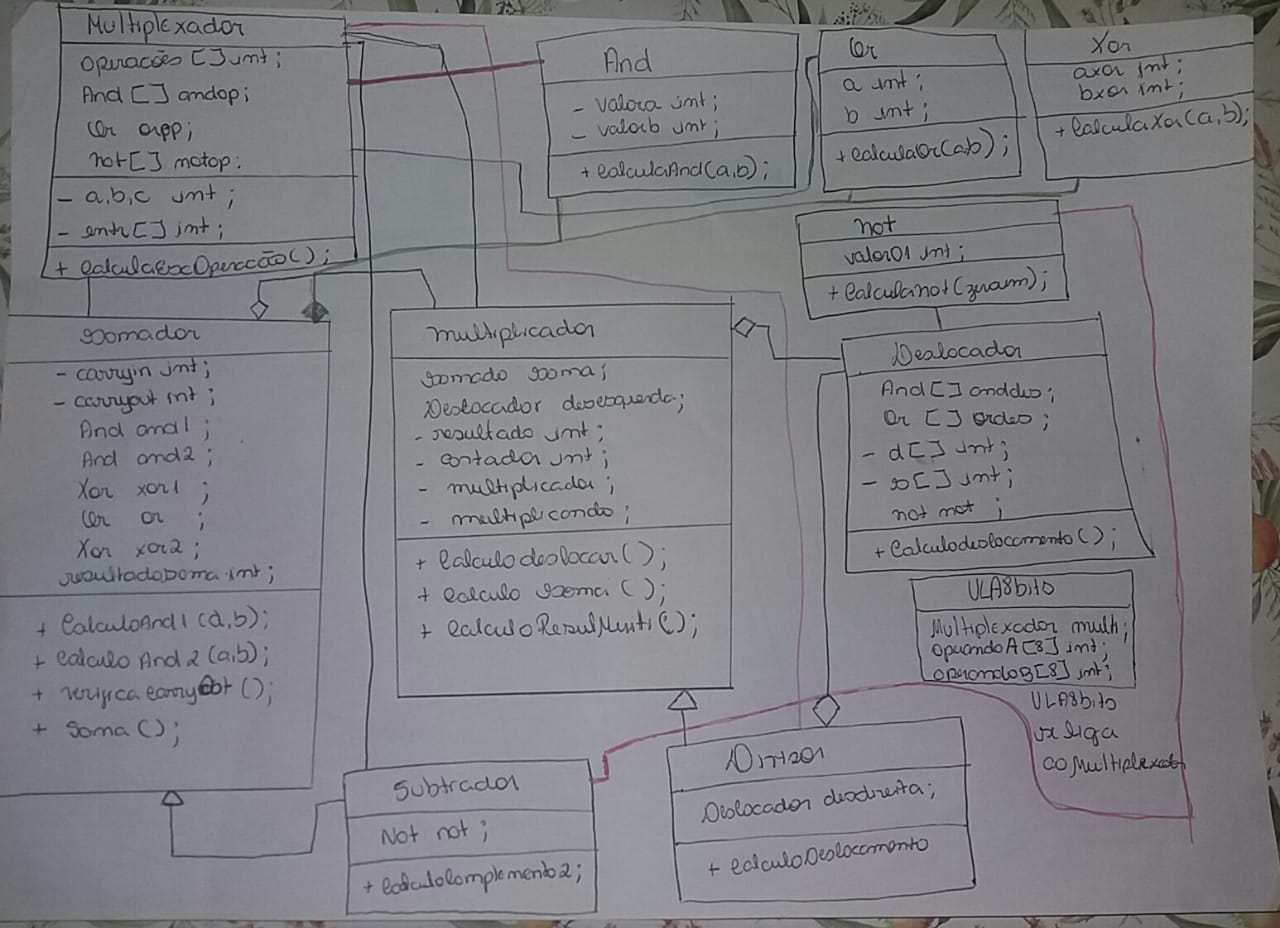 Multiplexador
operacões [] int;
And [] andop;
Or orpp;
not[] notop.
- a,b,c int;
- entr[] int;
+ CalculaEscOperacão();
And
- valora int;
- valorb int;
+ CalculaAnd(a,b);
Or
a int;
b int;
+ CalculaOr(a,b);
Xor
axor int;
bxor int;
+ CalculaXor(a,b);
not
valor01 int;
+ Calculanot(zeroum);
Somador
- carryin int;
- carryout int;
And and1 ;
And and2 ;
Xor xor1 ;
Or or ;
Xor xor2 ;
resultadosoma int;
+ CalculoAnd1 (a,b);
+ Calculo And 2 (a,b);
+ verificaCarryOut ();
+ Soma();
multiplicador
Somado soma;
Deslocador desesquerda;
- resultado int;
- contador int;
- multiplicador;
- multiplicando;
+ Calculodeslocar();
+ Calculo Soma ();
+ CalculoResulMulti();
Deslocador
And[] anddes;
Or [] ordes;
- d[] int;
- s[] int;
not not ;
+ Calculodeslocamento();
ULA8bits
Multiplexador multi;
OperandoA[8] int;
OperandoB[8] int;
ULA8bits
se liga
ao Multiplexador
Subtrador
Not not ;
+ CalculoComplemento2;
Divisor
Deslocador desdireita;
+ CalculoDeslocamento